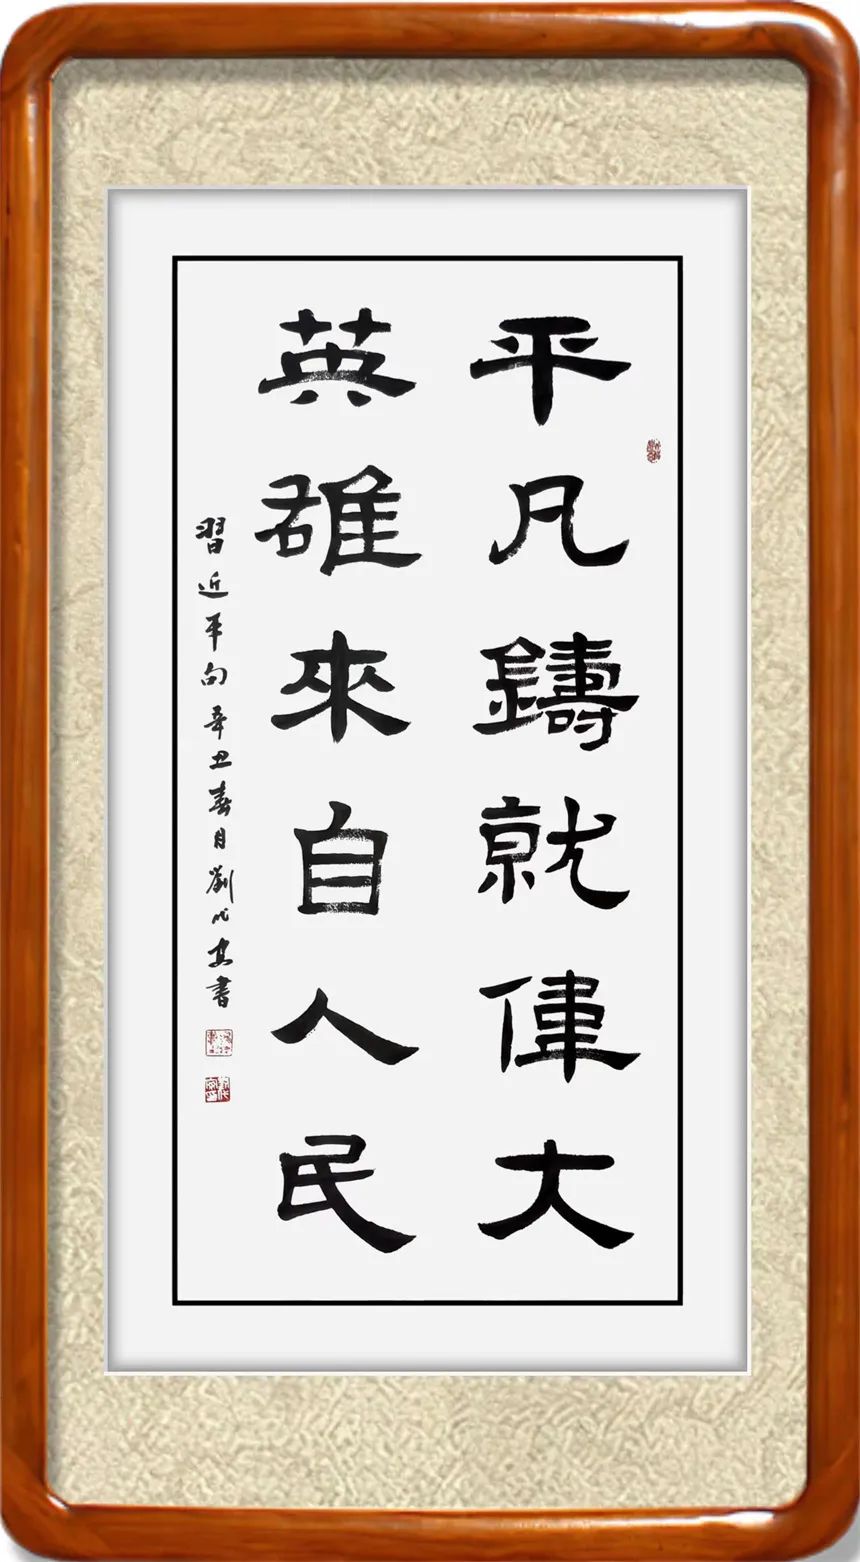 平凡鑄就偉大
英雄來自人民
習近平句辛丑春月劉代安書